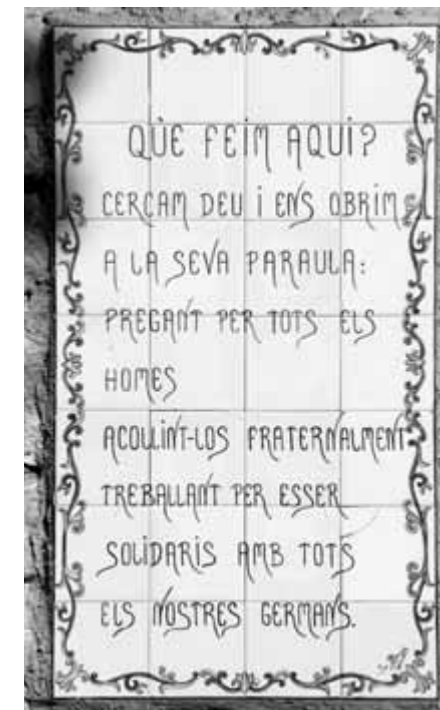 QUÈ FEIM AQUI?
CERCAM DEU I ENS OBRIM
A LA SEVA PARAULA:
PREGANT PER TOTS ELS
HOMES
ACOLLINT-LOS FRATERNALMENT
TREBALLANT PER ESSER
SOLIDARIS AMB TOTS
ELS NOSTRES GERMANS.